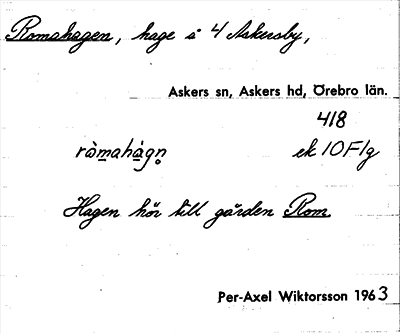 Romahagen, hage i 4 Askersby,
Askers sn, Askers hd, Örebro län.
418
ròmahàgn̥ ek 10F1g
Hagen hör till gården Rom.
Per-Axel Wiktorsson 1963